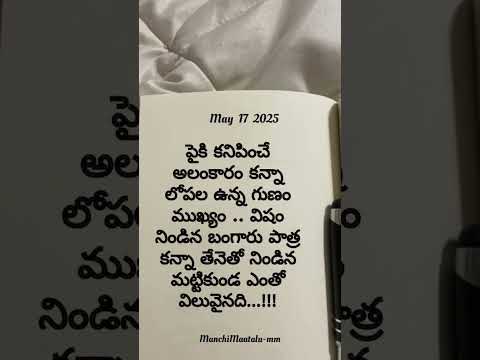 May 17 2025
పైకి కనిపించే
అలంకారం కన్నా
లోపల ఉన్న గుణం
ముఖ్యం .. విషం
నిండిన బంగారు పాత్ర
కన్నా తేనెతో నిండిన
మట్టికుండ ఎంతో
విలువైనది...!!!
ManchiMaatalu-mm